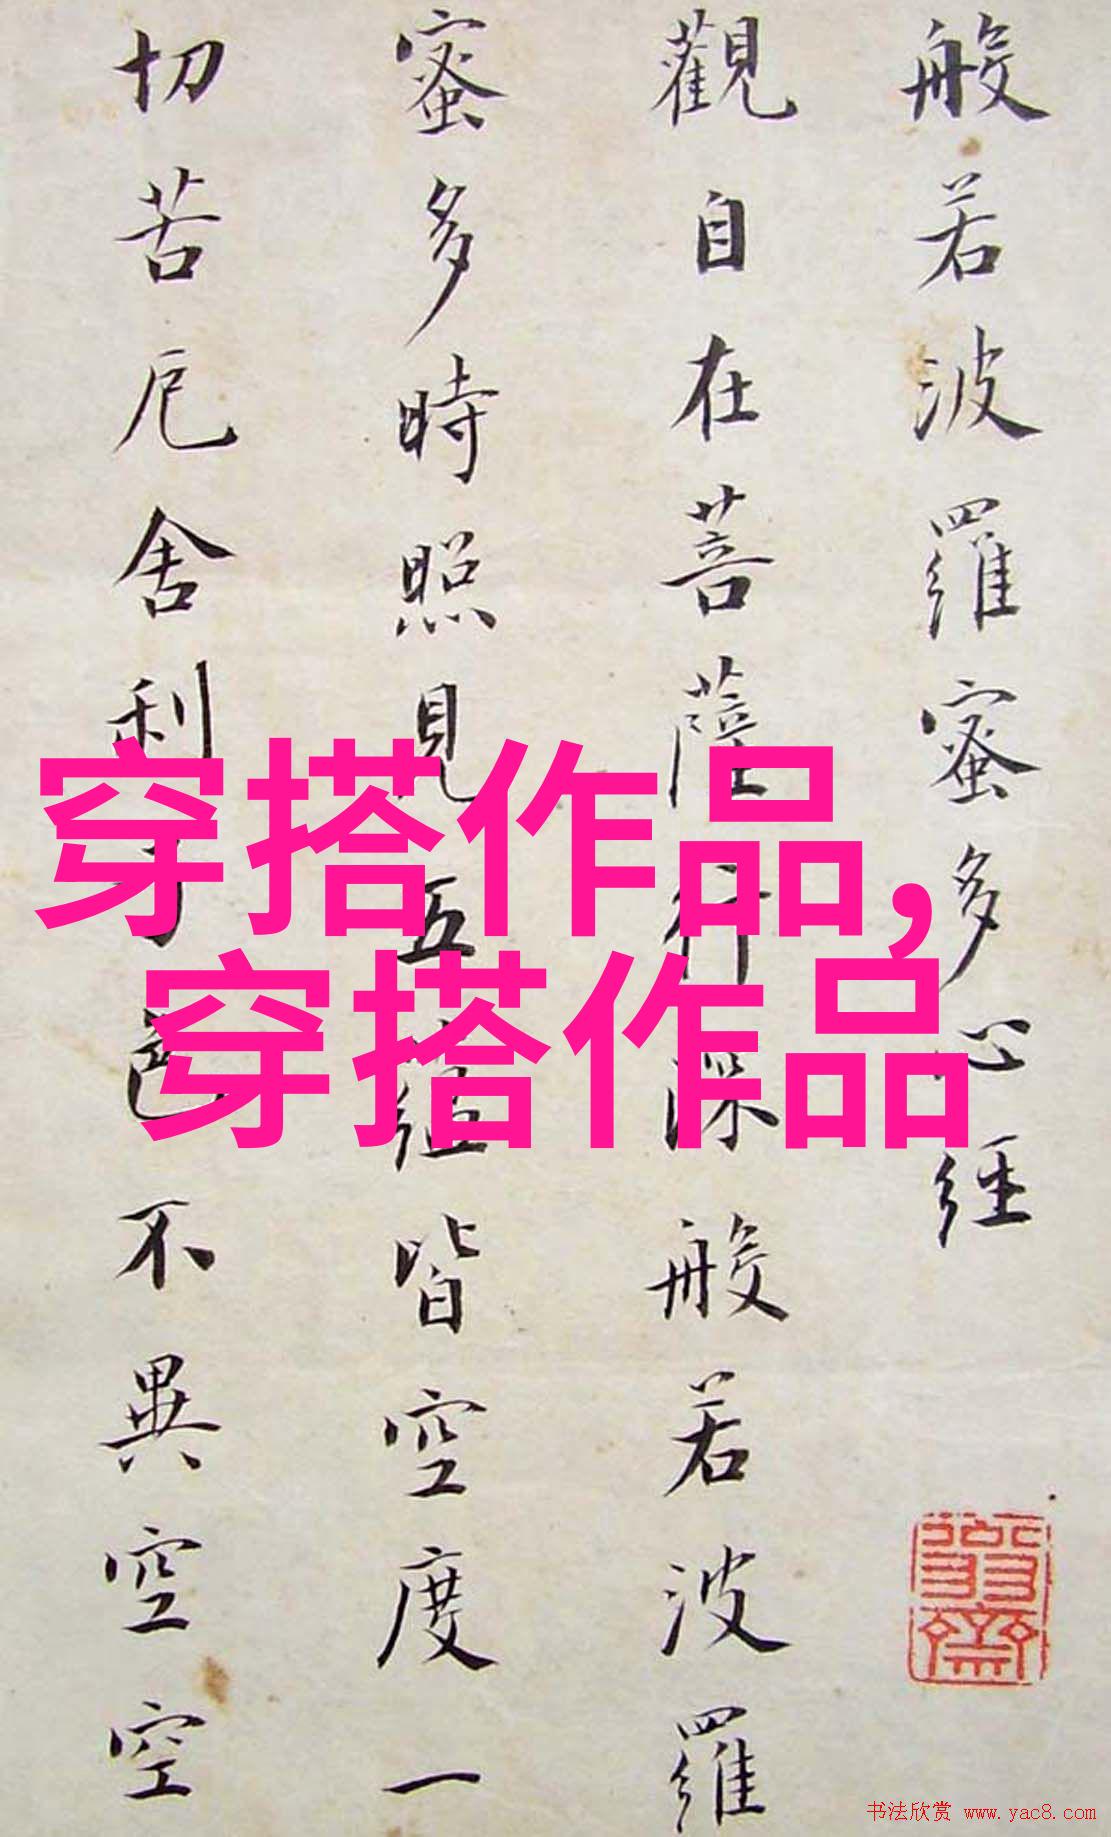 般若波羅蜜多心経
觀自在菩薩行深般若波羅
蜜多時照見五蕴皆空度一
切苦厄舍利子色不異空空
穿搭作品,
穿搭作品
书法欣赏 www.yac8.com